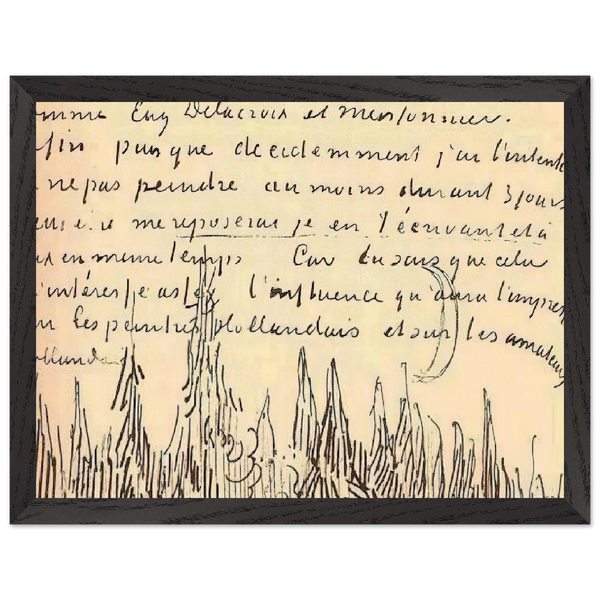 mme Eug Delacroix et Meissonnier.
fin puisque decidemment j'ai l'intent
ne pas peindre au moins durant 3 jours
me reposerai je en t'écrivant et à
en meme temps Car tu sais que cela
m'intéresse assez l'influence qu'aura l'impres
les peintres Hollandais et sur les amateurs
ollandais